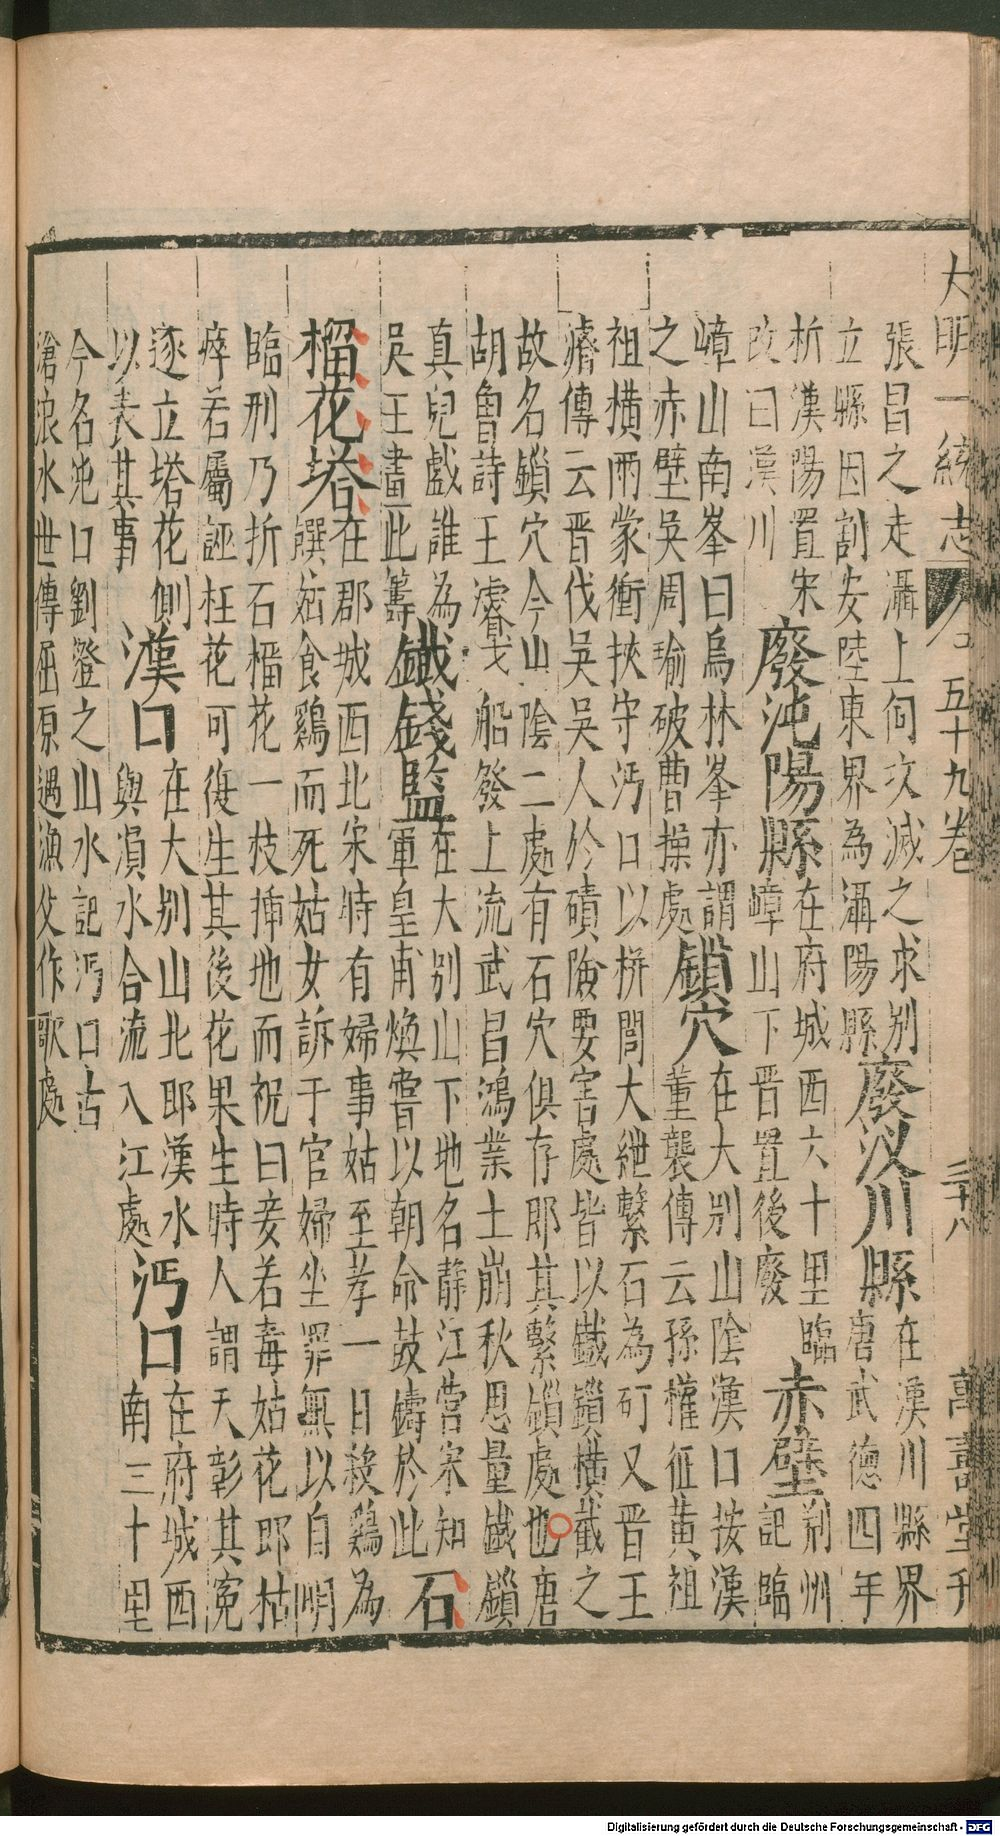 大明一統志 五十九卷 二十八 萬壽堂刊
張昌之走灄上伺攻滅之求別
立縣因割安陸東界為灄陽縣
廢汊川縣
在漢川縣界
唐武德四年
析漢陽置宋
改曰漢川
廢沌陽縣
在府城西六十里臨
嶂山下晉置後廢
赤壁
荆州
記臨
嶂山南峯曰烏林峯亦謂
之赤壁吳周瑜破曹操處
鎖穴
在大別山陰漢口按漢
董襲傳云孫權征黃祖
祖橫兩蒙衝挾守沔口以栟閭大紲繫石為矴又晉王
濬傳云晉伐吳吳人於磧險要害處皆以鐵鎖橫截之
故名鎖穴今山陰二處有石穴俱存即其繫鎖處也唐
胡魯詩王濬戈船發上流武昌鴻業土崩秋思量鐵鎖
真兒戲誰為
吳王畫此籌
鐵錢監
在大別山下地名靜江營宋知
軍皇甫煥嘗以朝命鼓鑄於此
石
榴花塔
在郡城西北宋時有婦事姑至孝一日殺鷄為
饌姑食鷄而死姑女訴于官婦坐罪無以自明
臨刑乃折石榴花一枝揷地而祝曰妾若毒姑花即枯
瘁若屬誣枉花可復生其後花果生時人謂天彰其冤
遂立塔花側
以表其事
漢口
在大別山北即漢水
與溳水合流入江處
沔口
在府城西
南三十里
今名沌口劉澄之山水記沔口古
滄浪水世傳屈原遇漁父作歌處
Digitalisierung gefördert durch die Deutsche Forschungsgemeinschaft - DFG